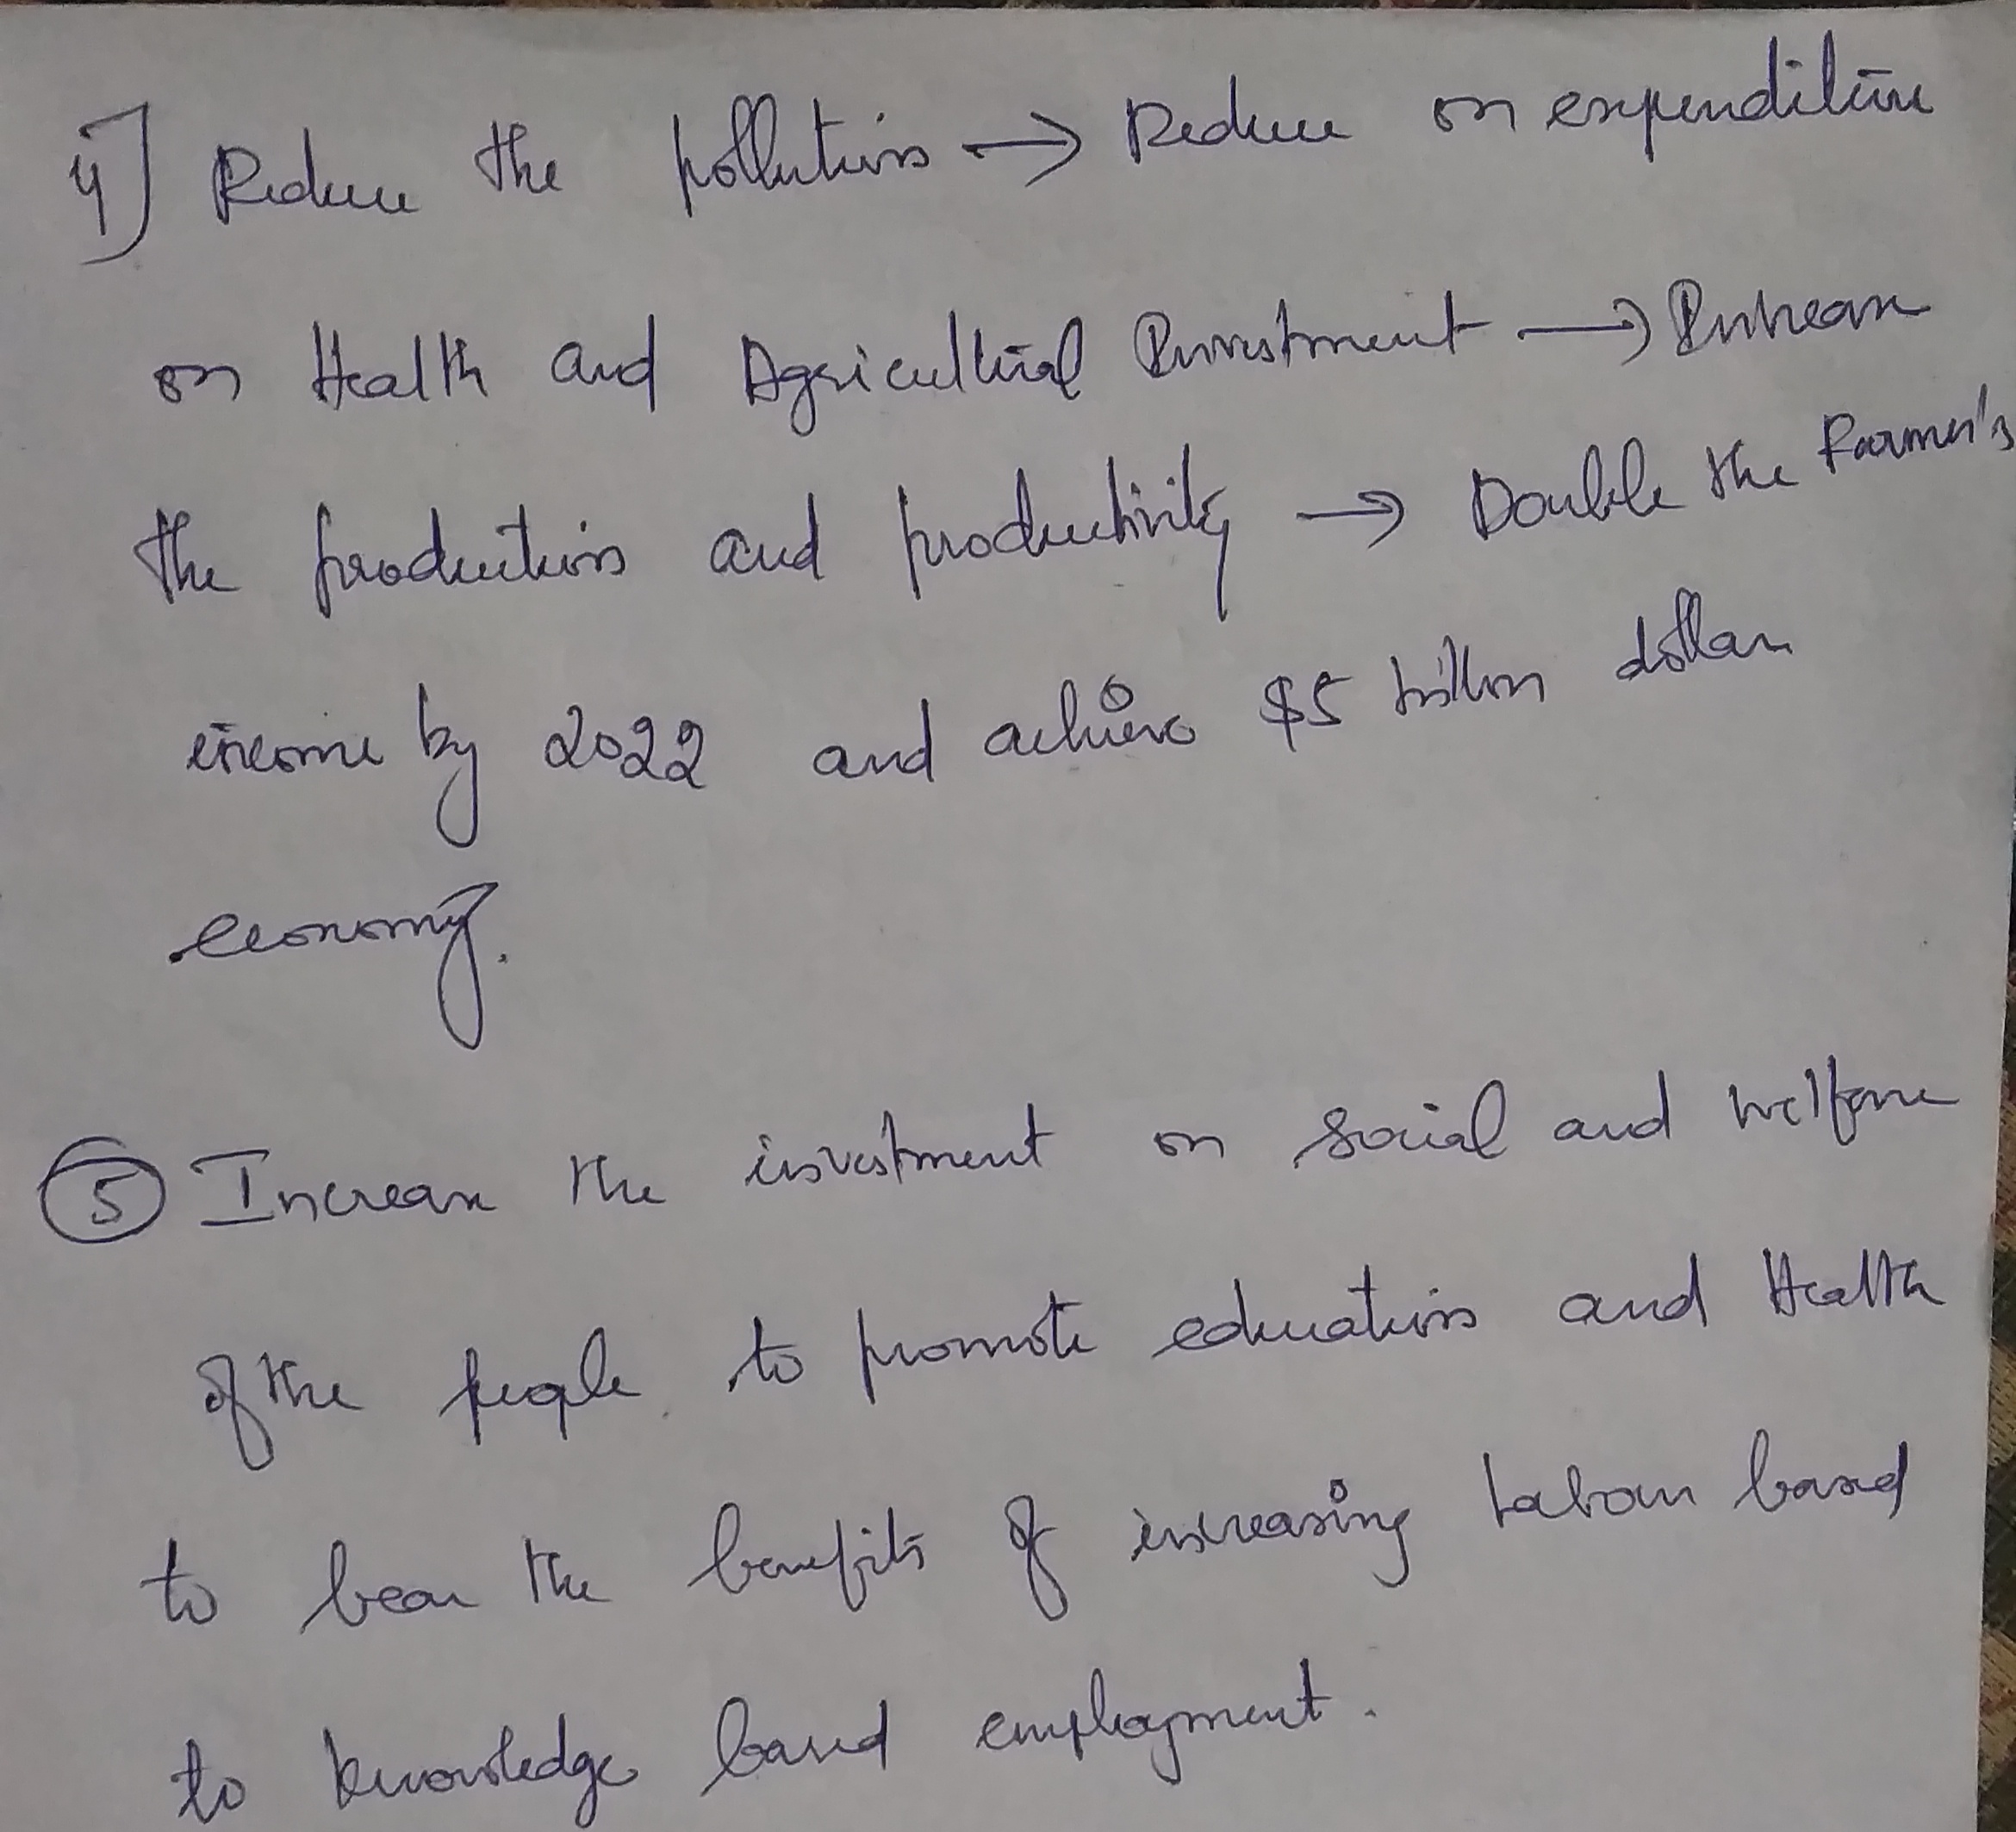 4] Reduce the pollution → Reduce on expenditure
on Health and Agricultural Investment → Increase
the production and productivity → Double the Farmer's
income by 2022 and achieve $5 trillion dollar
economy.
5 Increase the investment on social and welfare
of the people to promote education and Health
to bear the benefits of increasing Labour based
to knowledge based employment.